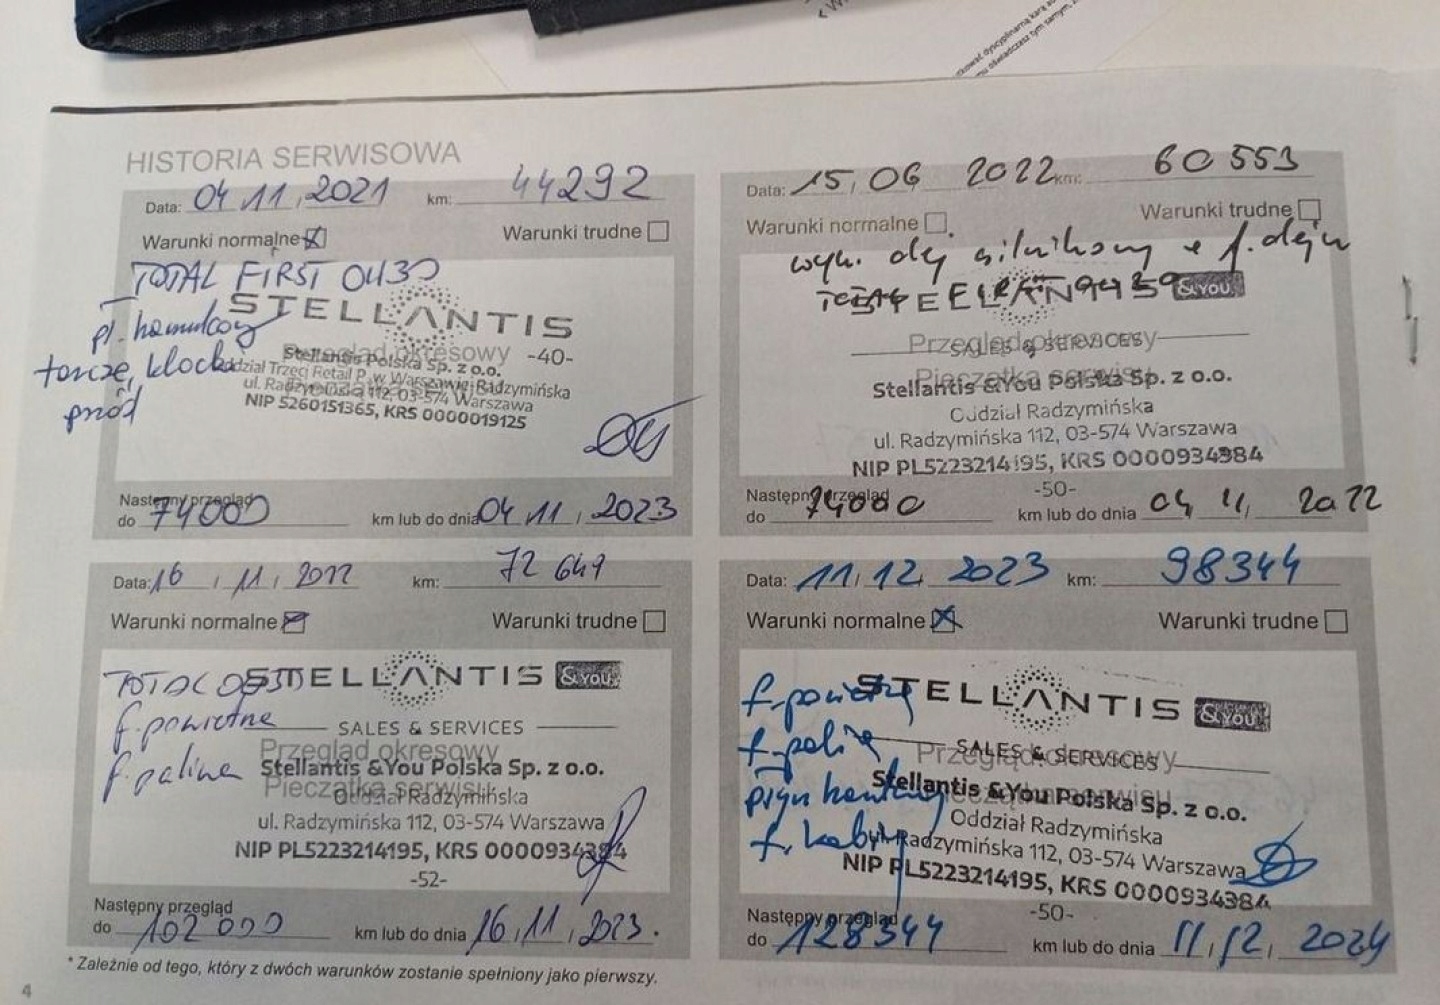 HISTORIA SERWISOWA
Data: 04 11, 2021 km: 44292
Warunki normalne Warunki trudne
TOTAL FIRST 0W30
STELLANTIS
pł. hamulcowy
Przegląd okresowy -40-
Stellantis Polska Sp. z o.o.
tarcze, klocki
Oddział Trzeci Retail p. w Warszawie, Radzymińska
ul. Radzymińska 112, 03-574 Warszawa
przód
NIP 5260151365, KRS 0000019125
Następny przegląd
do 74000 km lub do dnia 04, 11, 2023
Data: 15, 06 2022 km: 60 553
Warunki normalne Warunki trudne
wym. olej silnikowy + f. oleju
&YOU
Przegląd okresowy
SALES & SERVICES
Pieczątka serwisu
Stellantis &You Polska Sp. z o.o.
Oddział Radzymińska
ul. Radzymińska 112, 03-574 Warszawa
NIP PL5223214195, KRS 0000934384
Następny przegląd -50-
do 74000 km lub do dnia 04, 11, 2022
Data: 16, 11, 2022 km: 72 649
Warunki normalne Warunki trudne
TOTAL 0W30
STELLANTIS &YOU
f. powietrza
SALES & SERVICES
Przegląd okresowy
f. paliwa Stellantis &You Polska Sp. z o.o.
Pieczątka serwisu
Oddział Radzymińska
ul. Radzymińska 112, 03-574 Warszawa
NIP PL5223214195, KRS 0000934384
-52-
Następny przegląd
do 102 000 km lub do dnia 16, 11, 2023.
Data: 11, 12, 2023 km: 98344
Warunki normalne Warunki trudne
f. powietrza STELLANTIS &YOU
f. paliwa SALES & SERVICES
Przegląd okresowy
Stellantis &You Polska Sp. z o.o.
płyn hamulcowy
Pieczątka serwisu
Oddział Radzymińska
f. kabiny ul. Radzymińska 112, 03-574 Warszawa
NIP PL5223214195, KRS 0000934384
Następny przegląd -50-
do 128344 km lub do dnia 11, 12, 2024
* Zależnie od tego, który z dwóch warunków zostanie spełniony jako pierwszy.
4